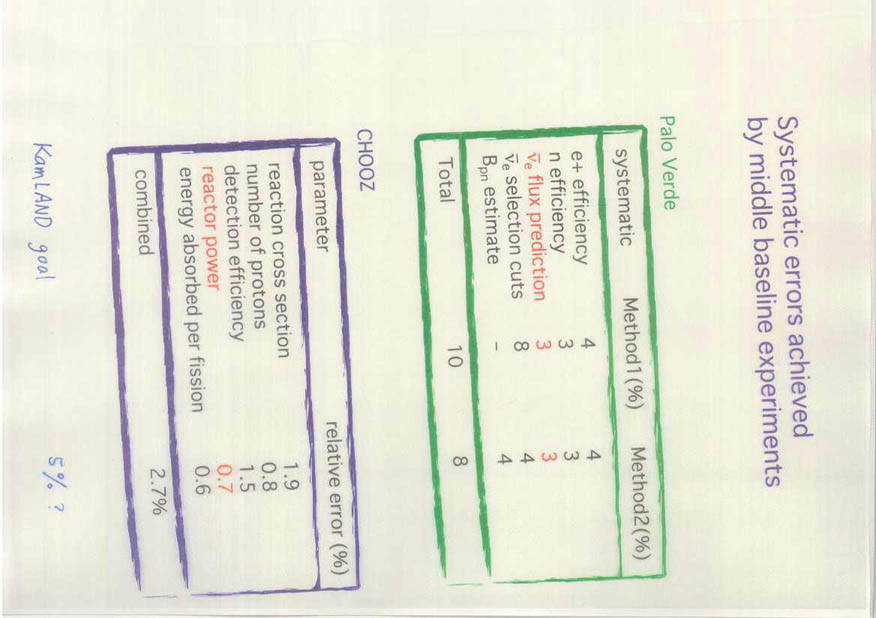 Systematic errors achieved
by middle baseline experiments
Palo Verde
systematic Method1(%) Method2(%)
e+ efficiency 4 4
n efficiency 3 3
ν̄e flux prediction 3 3
ν̄e selection cuts 8 4
Bpn estimate – 4
Total 10 8
CHOOZ
parameter relative error (%)
reaction cross section 1.9
number of protons 0.8
detection efficiency 1.5
reactor power 0.7
energy absorbed per fission 0.6
combined 2.7%
KamLAND goal 5% ?